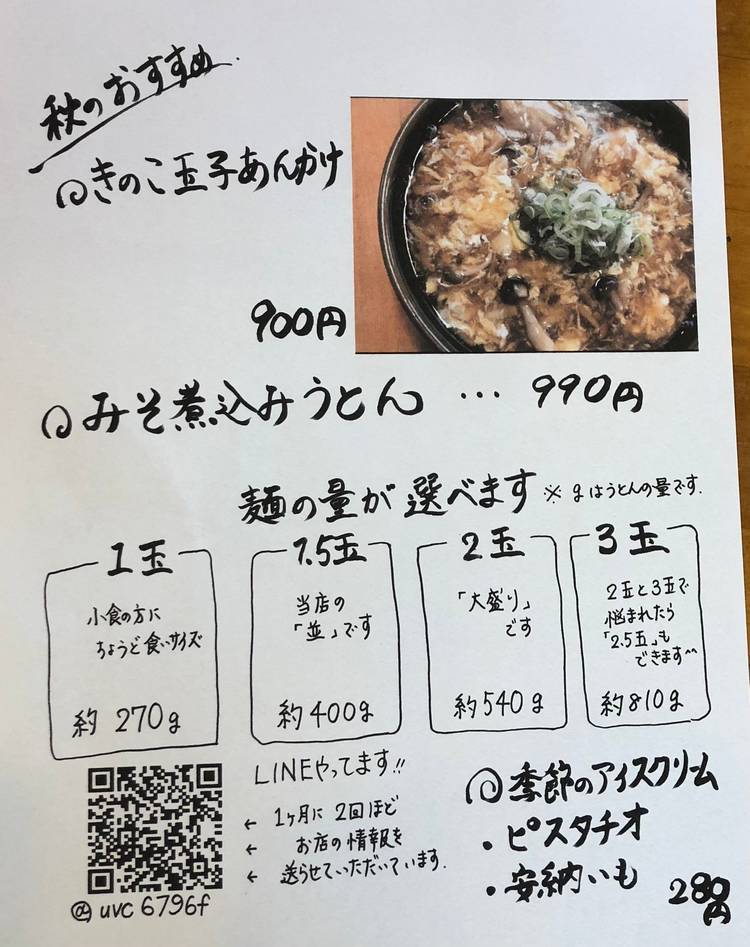 秋のおすすめ
きのこ玉子あんかけ
900円
みそ煮込みうどん … 990円
麺の量が選べます ※gはうどんの量です.
1玉
小食の方に
ちょうど食いサイズ
約270g
1.5玉
当店の
「並」です
約400g
2玉
「大盛り」
です
約540g
3玉
2玉と3玉で
悩まれたら
「2.5玉」も
できます^^
約810g
LINEやってます!!
← 1ヶ月に2回ほど
← お店の情報を
← 送らせていただいています.
@uvc6796f
季節のアイスクリーム
・ピスタチオ
・安納いも
280円